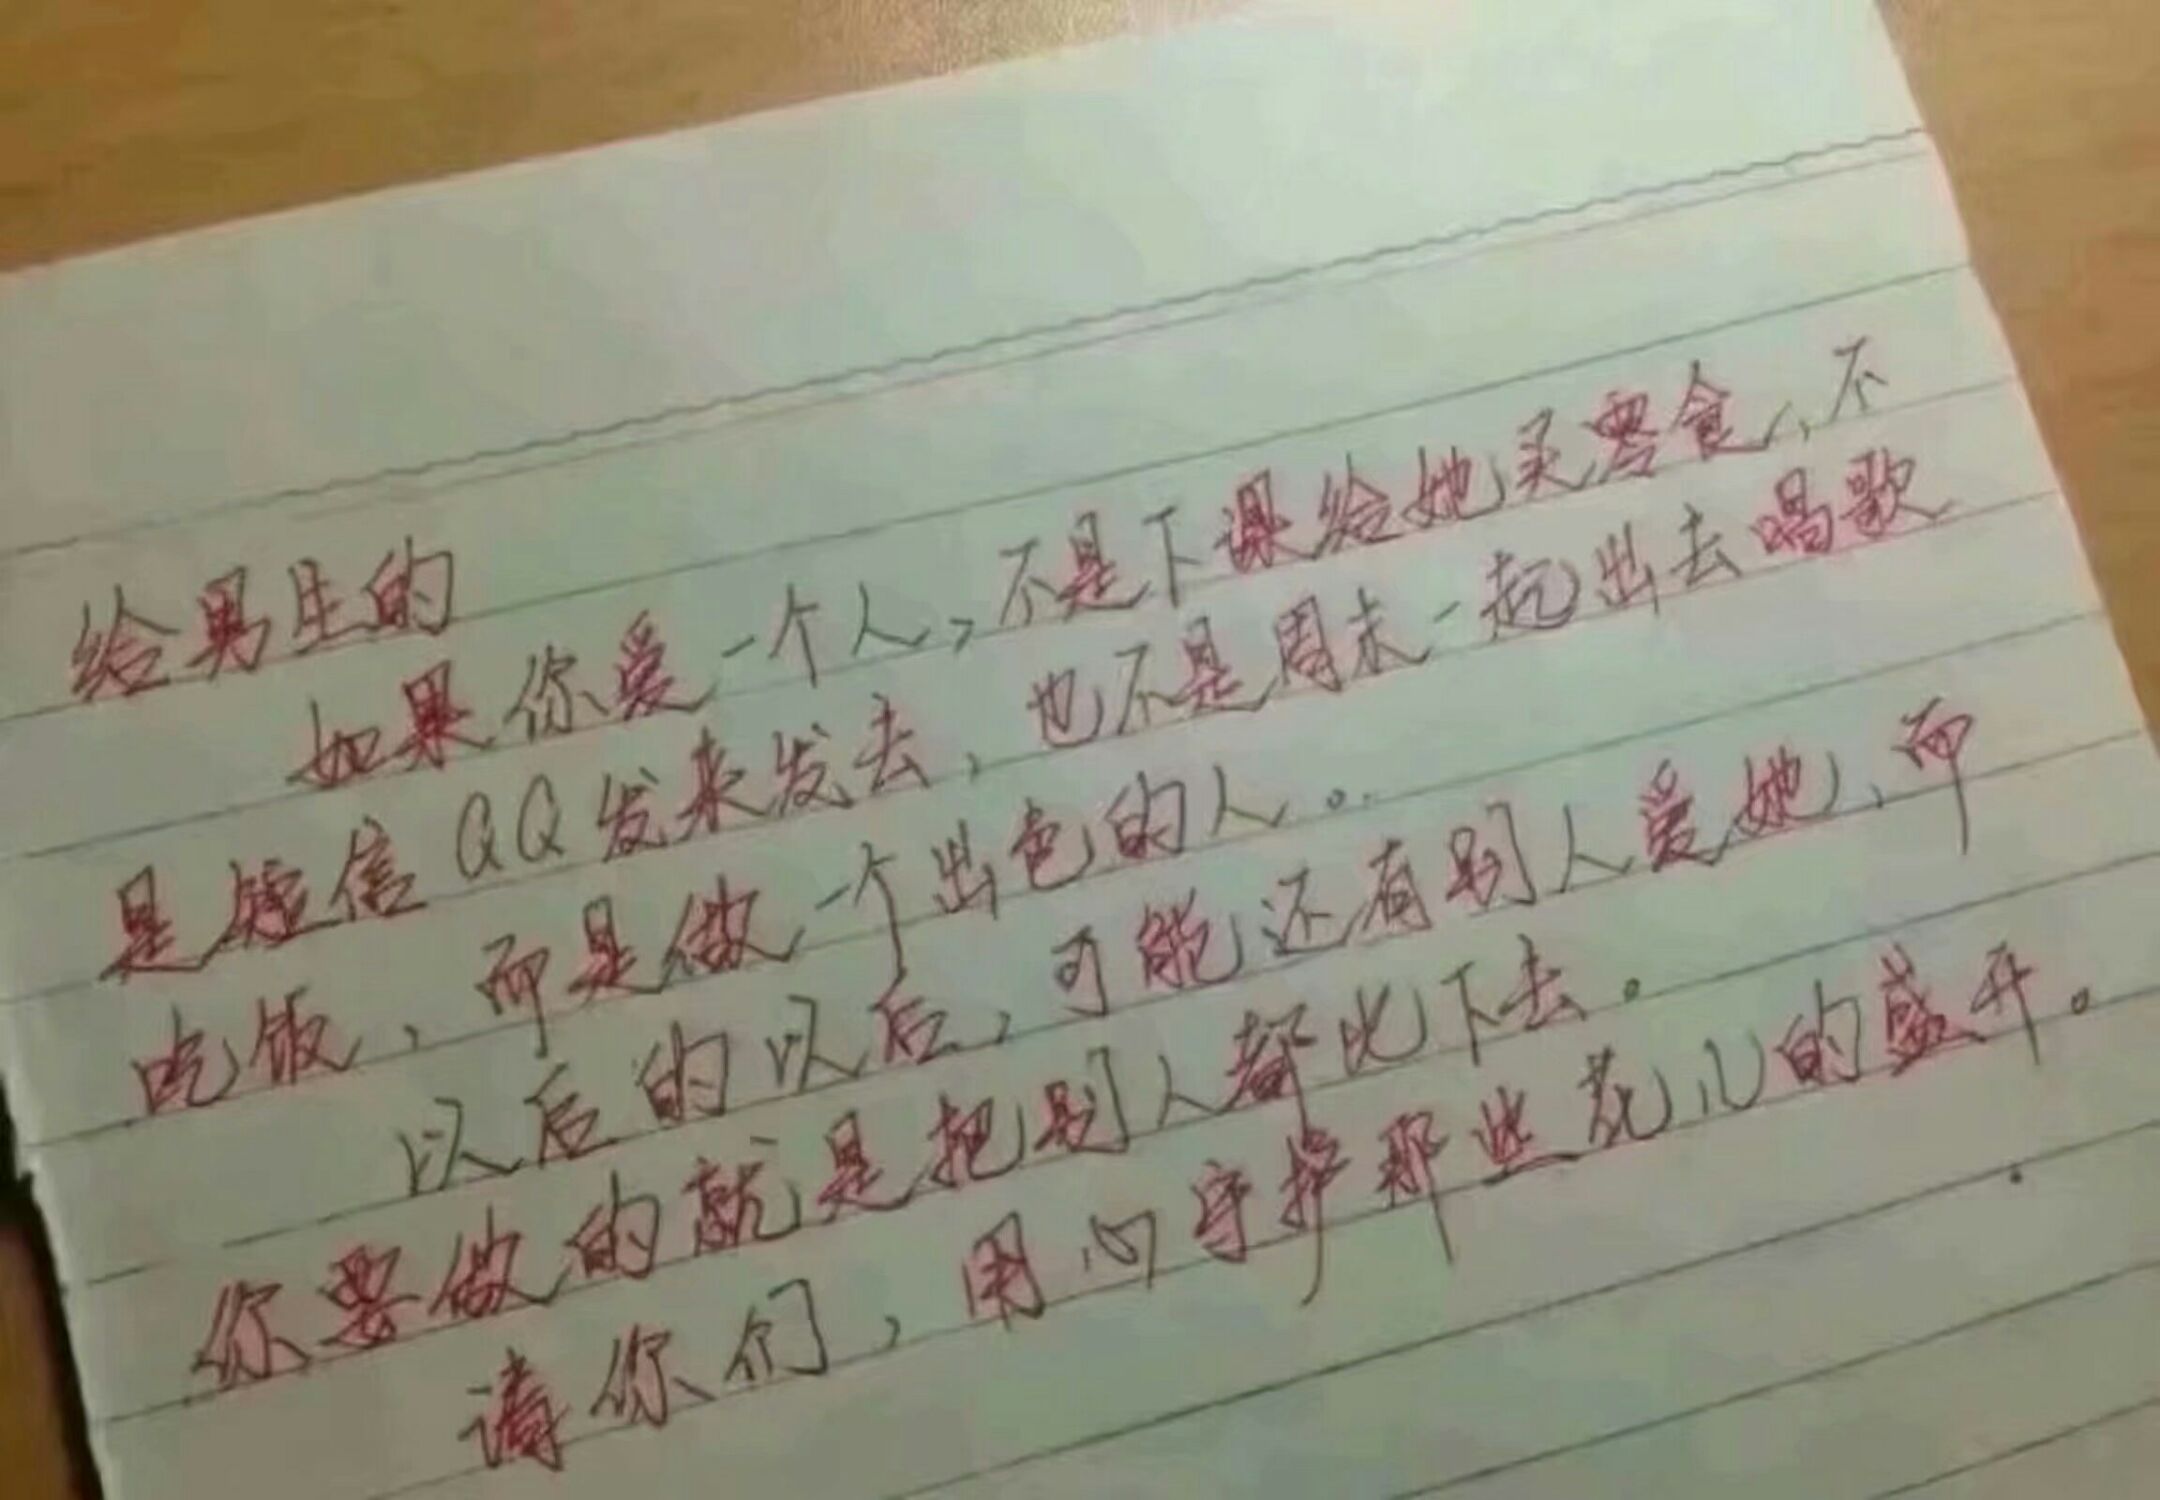 给男生的
如果你爱一个人,不是下课给她买零食,不
是短信QQ发来发去,也不是周末一起出去唱歌
吃饭,而是做一个出色的人。
以后的以后,可能还有别人爱她,而
你要做的就是把别人都比下去。
请你们,用心守护那些花儿的盛开。